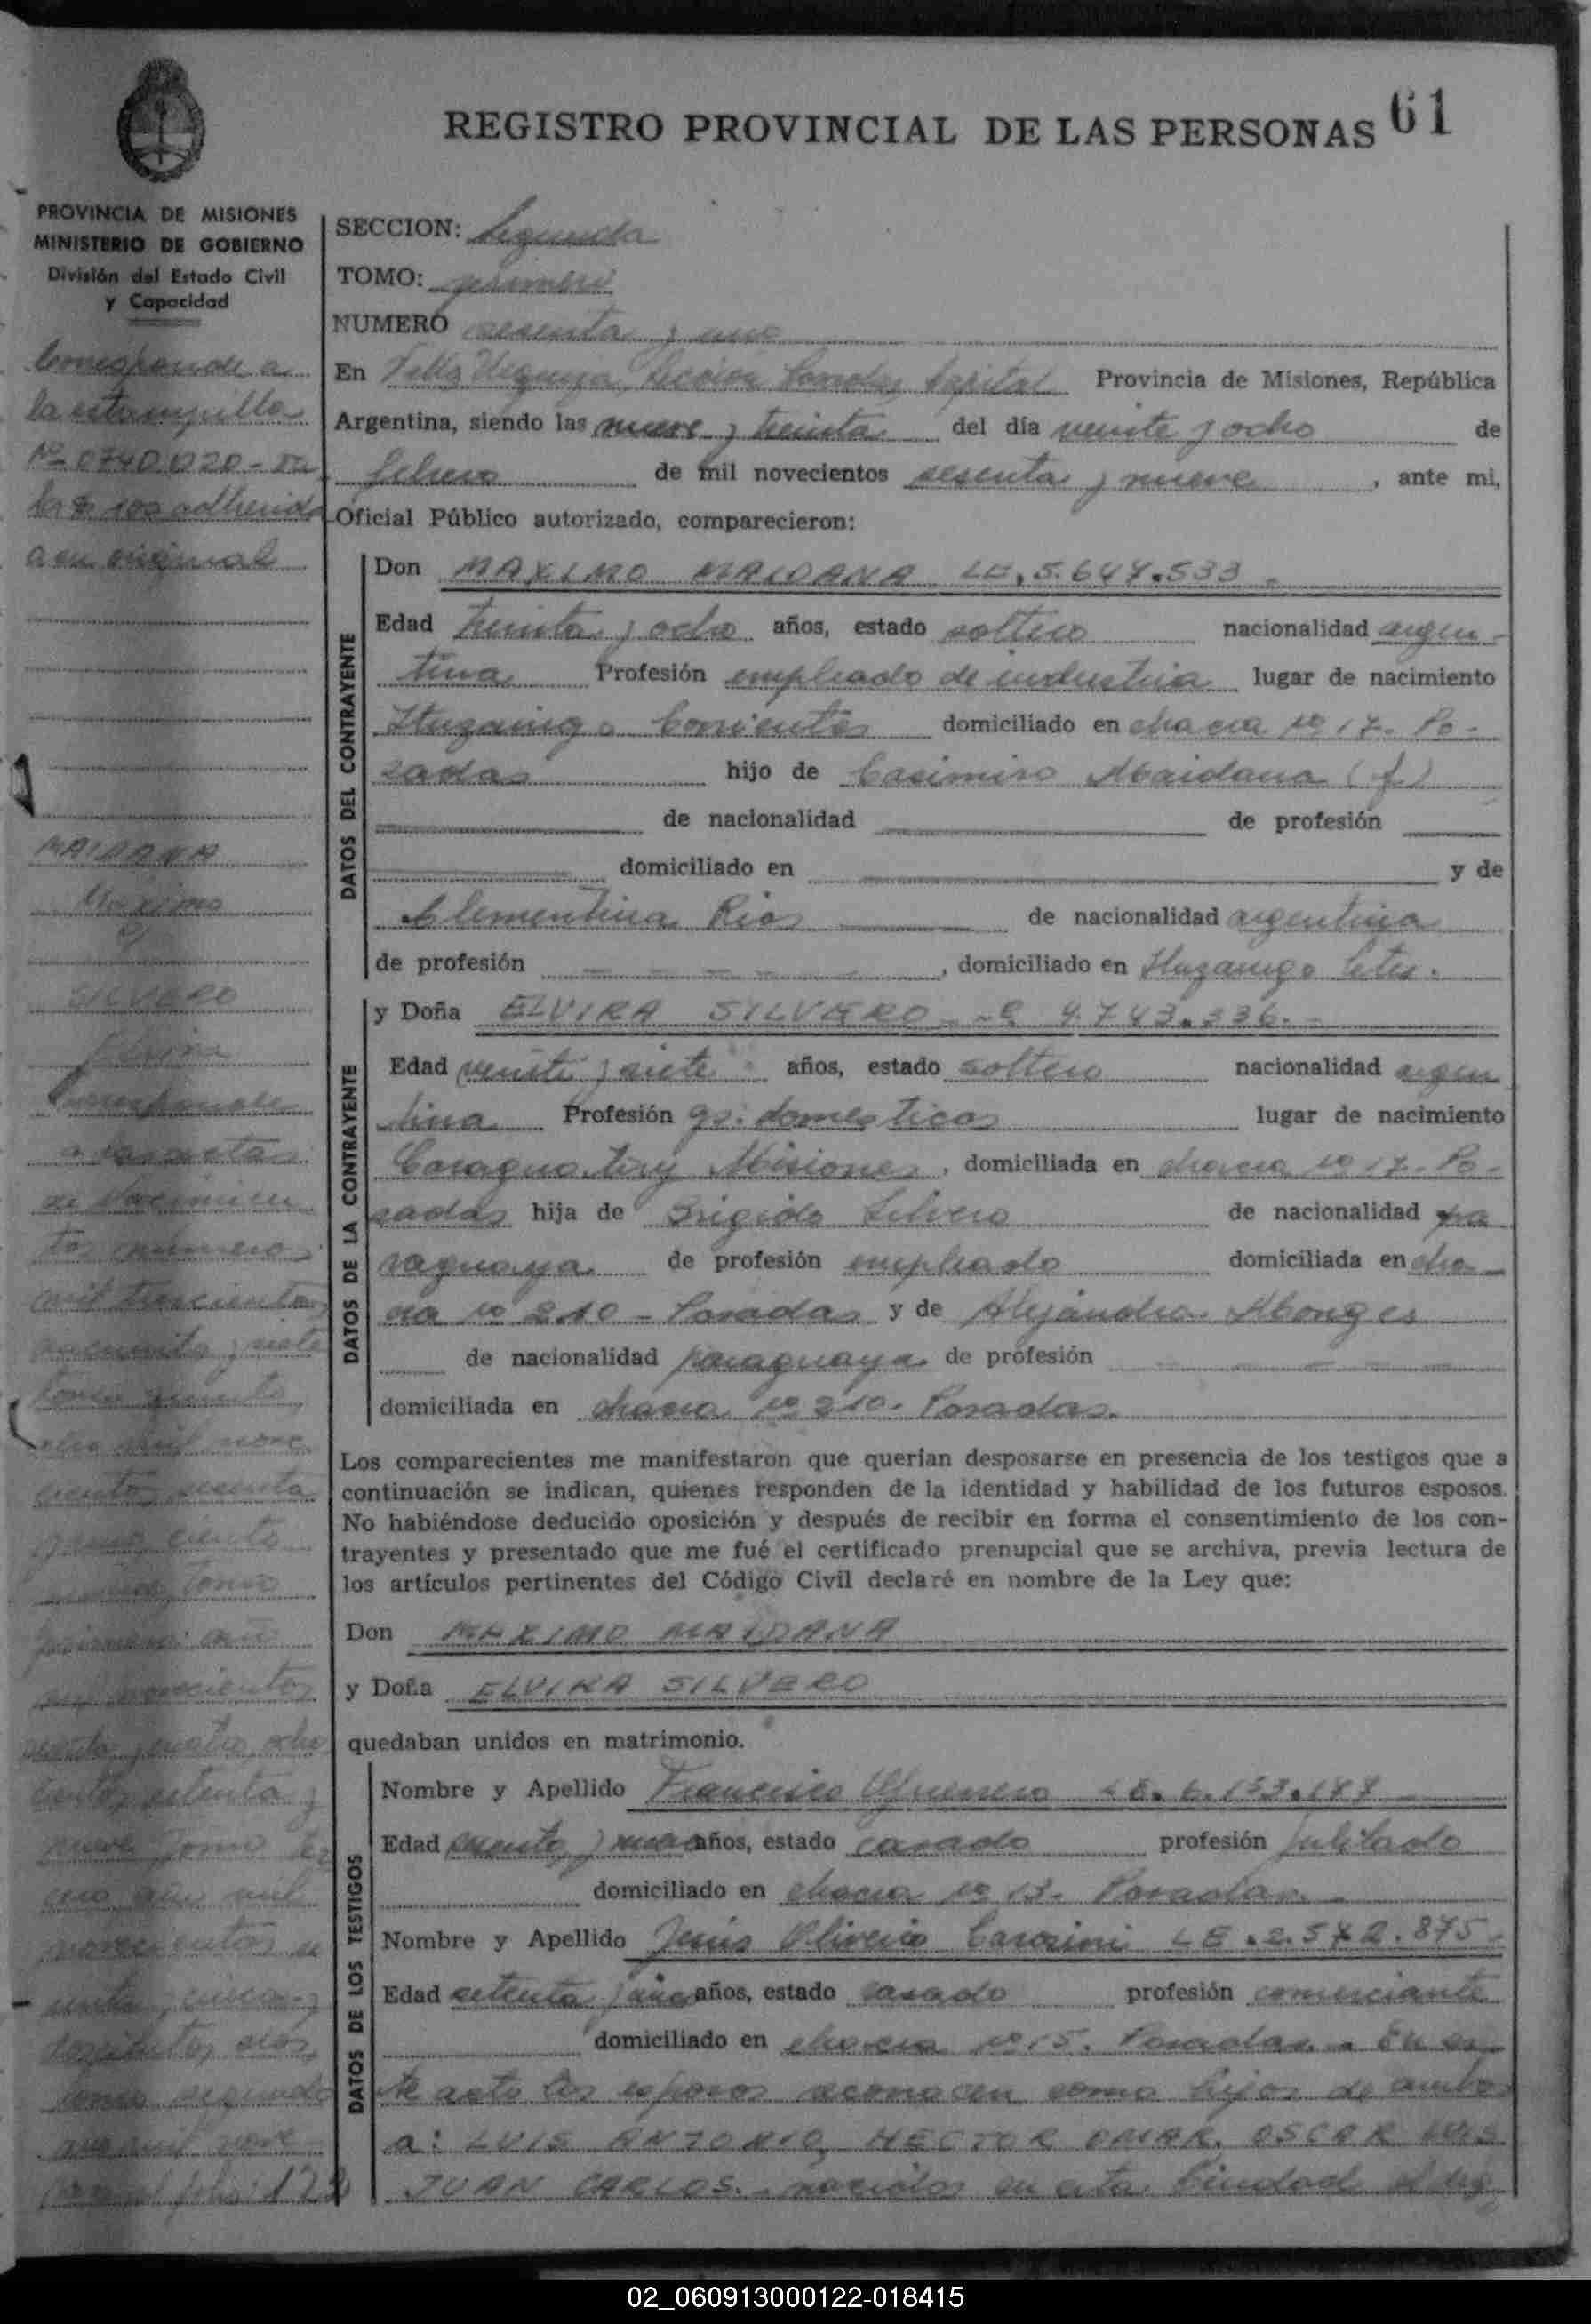 REGISTRO PROVINCIAL DE LAS PERSONAS 61
PROVINCIA DE MISIONES
MINISTERIO DE GOBIERNO
División del Estado Civil
y Capacidad
Corresponde a
la estampilla
Nº 0740020
$ 100 adherida
a su original
MAIDANA
Máximo
c/
SILVERO
Elvira
Corresponde
a las actas
de nacimien
tos números
mil trescientos
cincuenta y siete
tomo
año mil nove
cientos sesenta
ciento
tomo
primero año
mil novecientos
sesenta y cuatro, ocho
cientos setenta y
nueve tomo ter
cero año mil
novecientos se
senta y cinco y
dos
tomo segundo
año mil nove
folio 122
SECCION: Segunda
TOMO: primero
NUMERO sesenta y uno
En Villa Urquiza Sección Capital Provincia de Misiones, República
Argentina, siendo las nueve y treinta del día veinte y ocho de
febrero de mil novecientos sesenta y nueve, ante mi,
Oficial Público autorizado, comparecieron:
DATOS DEL CONTRAYENTE
Don MAXIMO MAIDANA LE. 5.647.533.
Edad treinta y ocho años, estado soltero nacionalidad argen-
tina Profesión empleado de industria lugar de nacimiento
Ituzaingo Corrientes domiciliado en chacra nº 17- Po-
sadas hijo de Casimiro Maidana (f)
de nacionalidad de profesión
domiciliado en y de
Clementina Rios de nacionalidad argentina
de profesión - - - - -, domiciliado en Ituzaingo Ctes.
DATOS DE LA CONTRAYENTE
y Doña ELVIRA SILVERO 4.743.336.-
Edad veinte y siete años, estado soltera nacionalidad argen
tina Profesión qs. domesticos lugar de nacimiento
Caraguatay Misiones, domiciliada en chacra nº 17- Po-
sadas hija de Brigido Silvero de nacionalidad pa
raguaya de profesión empleado domiciliada en cha-
cra nº 210 - Posadas y de Alejandra Monges
de nacionalidad paraguaya de profesión - - - -
domiciliada en chacra nº 210. Posadas.
Los comparecientes me manifestaron que querían desposarse en presencia de los testigos que a
continuación se indican, quienes responden de la identidad y habilidad de los futuros esposos.
No habiéndose deducido oposición y después de recibir en forma el consentimiento de los con-
trayentes y presentado que me fué el certificado prenupcial que se archiva, previa lectura de
los artículos pertinentes del Código Civil declaré en nombre de la Ley que:
Don MAXIMO MAIDANA
y Doña ELVIRA SILVERO
quedaban unidos en matrimonio.
DATOS DE LOS TESTIGOS
Nombre y Apellido Francisco LE. 6.153.
Edad y años, estado casado profesión Jubilado
domiciliado en chacra nº 13- Posadas.
Nombre y Apellido Jesús Oliverio LE. 2.542.875-
Edad setenta y años, estado casado profesión comerciante
domiciliado en chacra nº 15. Posadas.- En es-
te acto los esposos reconocen como hijos de ambos
a: LUIS ANTONIO, HECTOR OMAR, OSCAR LUIS
JUAN CARLOS.- nacidos en esta Ciudad el
02_060913000122-018415